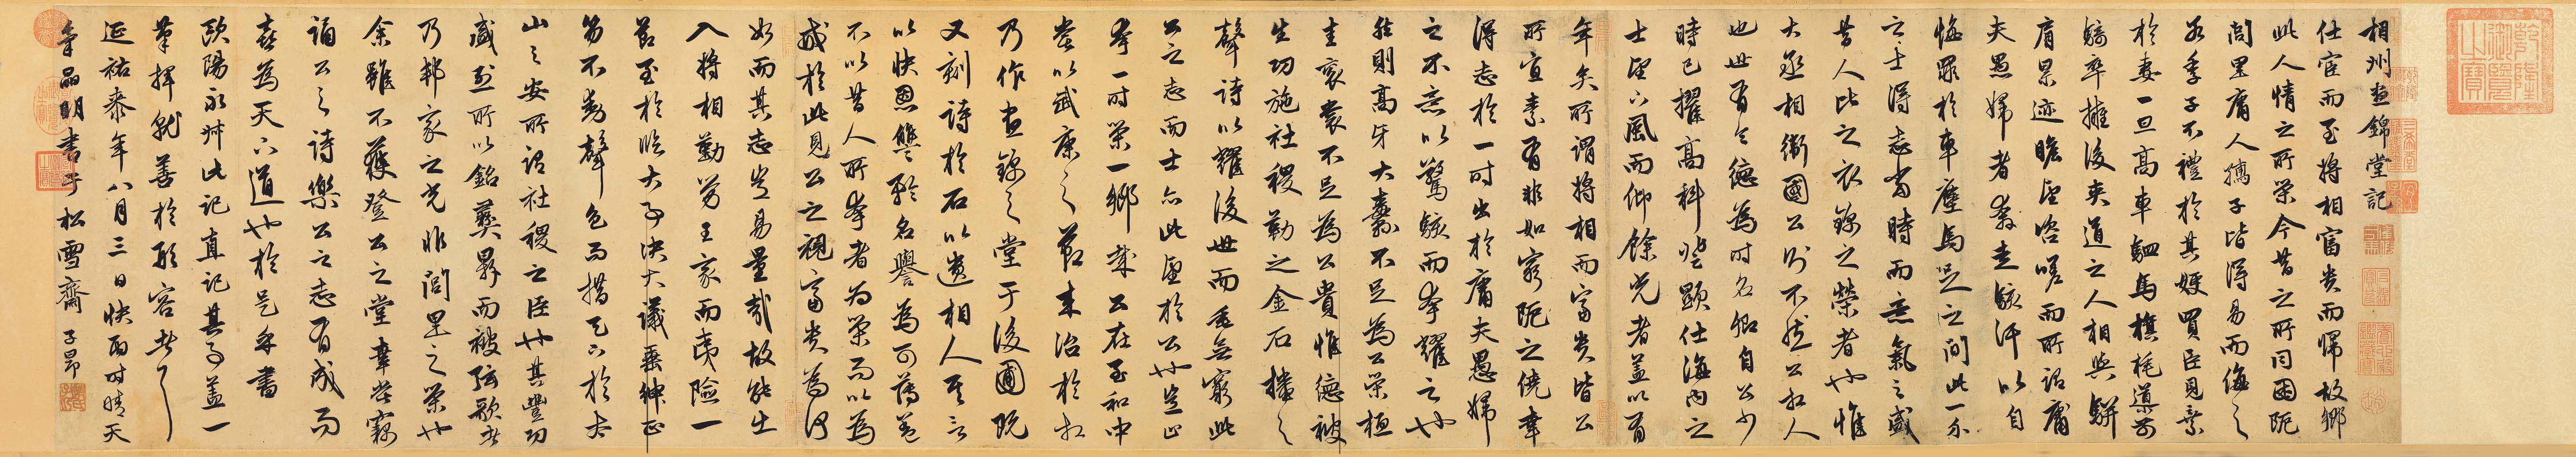 相州晝錦堂記
仕宦而至將相富貴而歸故鄉
此人情之所榮今昔之所同困阨
閭里庸人孺子皆得易而侮之
若季子不禮於其嫂買臣見棄
於妻一旦高車駟馬旗旄導前
騎卒擁後夾道之人相與駢
肩累迹瞻望咨嗟而所謂庸
夫愚婦者奔走駭汗以自
悔罪於車塵馬足之間此一介
之士得志當時而意氣之盛
昔人比之衣錦之榮者也惟
大丞相衛國公則不然公相人
也世有令德為時名卿自公少
時已擢高科登顯仕海內之
士望下風而仰餘光者蓋以有
年矣所謂將相而富貴皆公
所宜素有非如窮阨之僥幸
得志於一時出於庸夫愚婦
之不意以驚駭而夸耀之也
然則高牙大纛不足為公榮桓
圭袞裳不足為公貴惟德被
生功施社稷勒之金石播之
聲詩以耀後世而垂無窮此
公之志而士亦此望於公也豈止
夸一時榮一鄉哉公在至和中
嘗以武康之節來治於相
乃作晝錦之堂于後圃既
又刻詩於石以遺相人其言
以快恩讎矜名譽為可薄蓋
不以昔人所夸者為榮而以為
戒於此見公之視富貴為何
如而其志豈易量哉故能出
入將相勤勞王家而夷險一
節至於臨大事決大議垂紳正
笏不動聲色而措天下於太
山之安所謂社稷之臣也其豐功
盛烈所以銘彝鼎而被弦歌者
乃邦家之光非閭里之榮也
余雖不獲登公之堂幸嘗竊
誦公之詩樂公之志有成而
喜為天下道也於是乎書
歐陽永叔此記真記其事蓋一
筆揮就善於形容者
延祐泰年八月三日快雨時晴天
氣品明書于松雪齋 子昂
乾隆御覽之寶